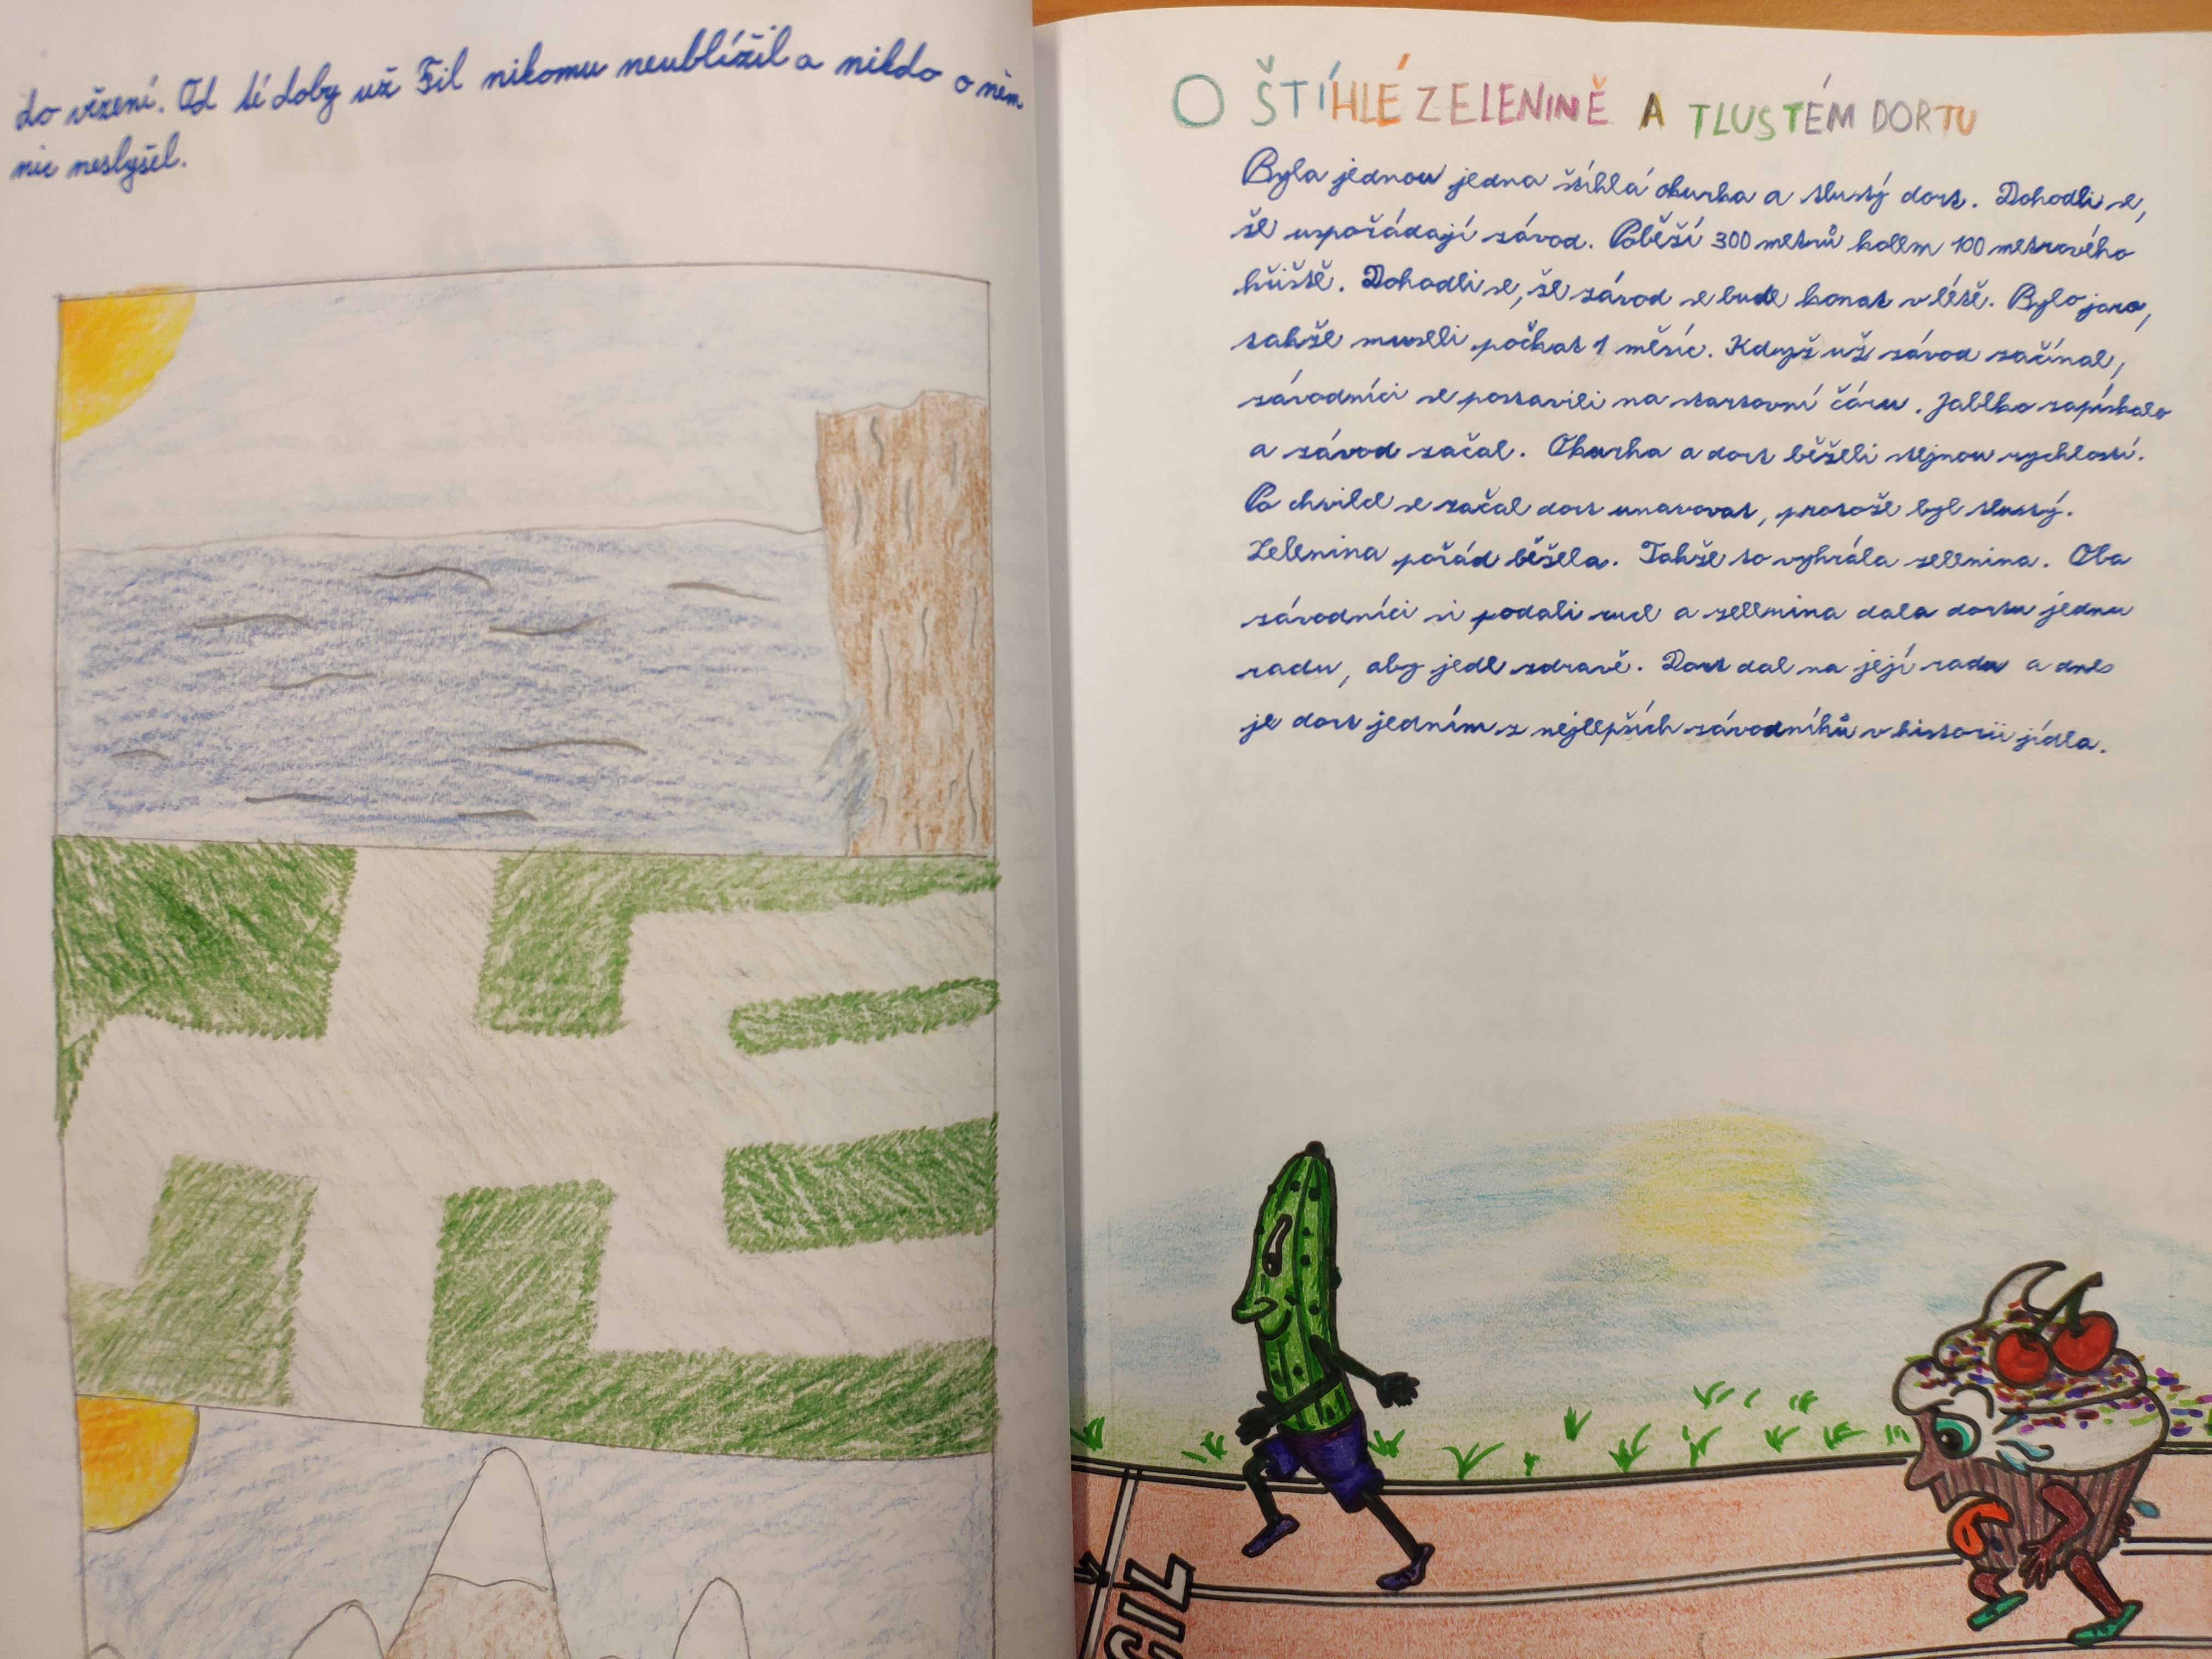 do vězení. Od té doby už Fil nikomu neublížil a nikdo o něm
nic neslyšel.
O ŠTÍHLÉ ZELENINĚ A TLUSTÉM DORTU
Byla jednou jedna štíhlá okurka a tlustý dort. Dohodli se,
že uspořádají závod. Poběží 300 metrů kolem 100 metrového
hřiště. Dohodli se, že závod se bude konat v létě. Bylo jaro,
takže museli počkat 1 měsíc. Když už závod začínal,
závodníci se postavili na startovní čáru. Jablko zapískalo
a závod začal. Okurka a dort běželi stejnou rychlostí.
Po chvíle se začal dort unavovat, protože byl tlustý.
Zelenina pořád běžela. Takže to vyhrála zelenina. Oba
závodníci si podali ruce a zelenina dala dortu jednu
radu, aby jedl zdravě. Dort dal na její radu a dnes
je dort jedním z nejlepších závodníků v historii jídla.